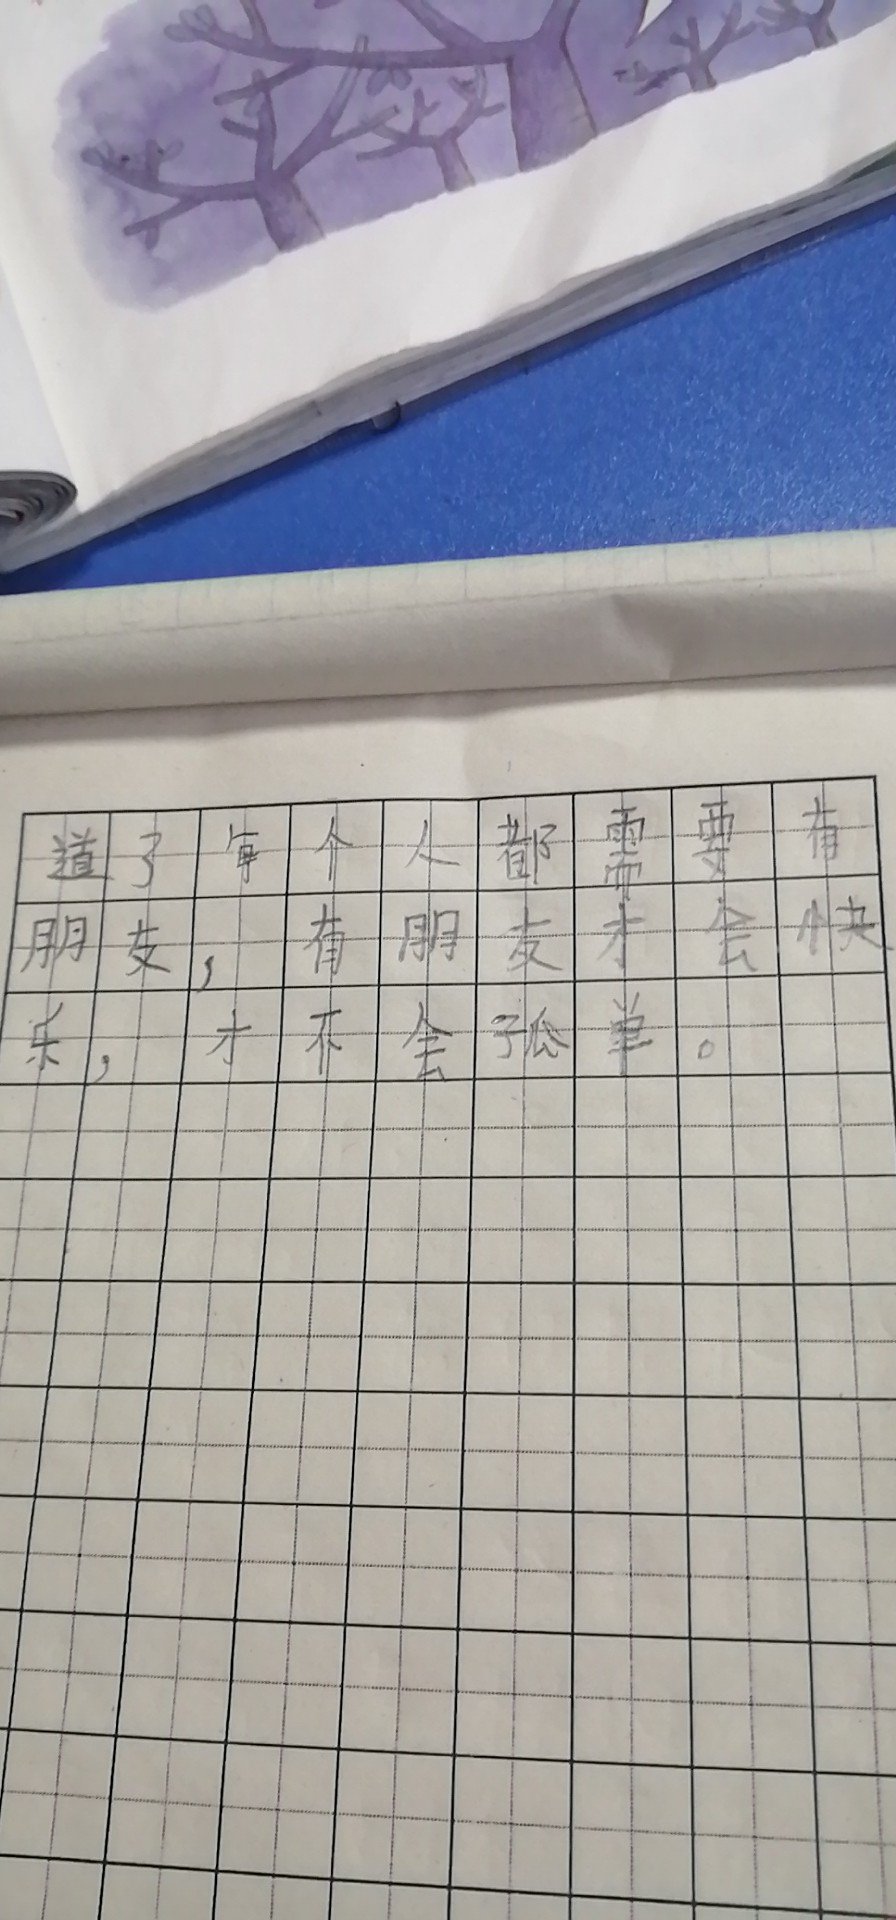 道了每个人都需要有
朋友，有朋友才会快
乐，才不会孤单。